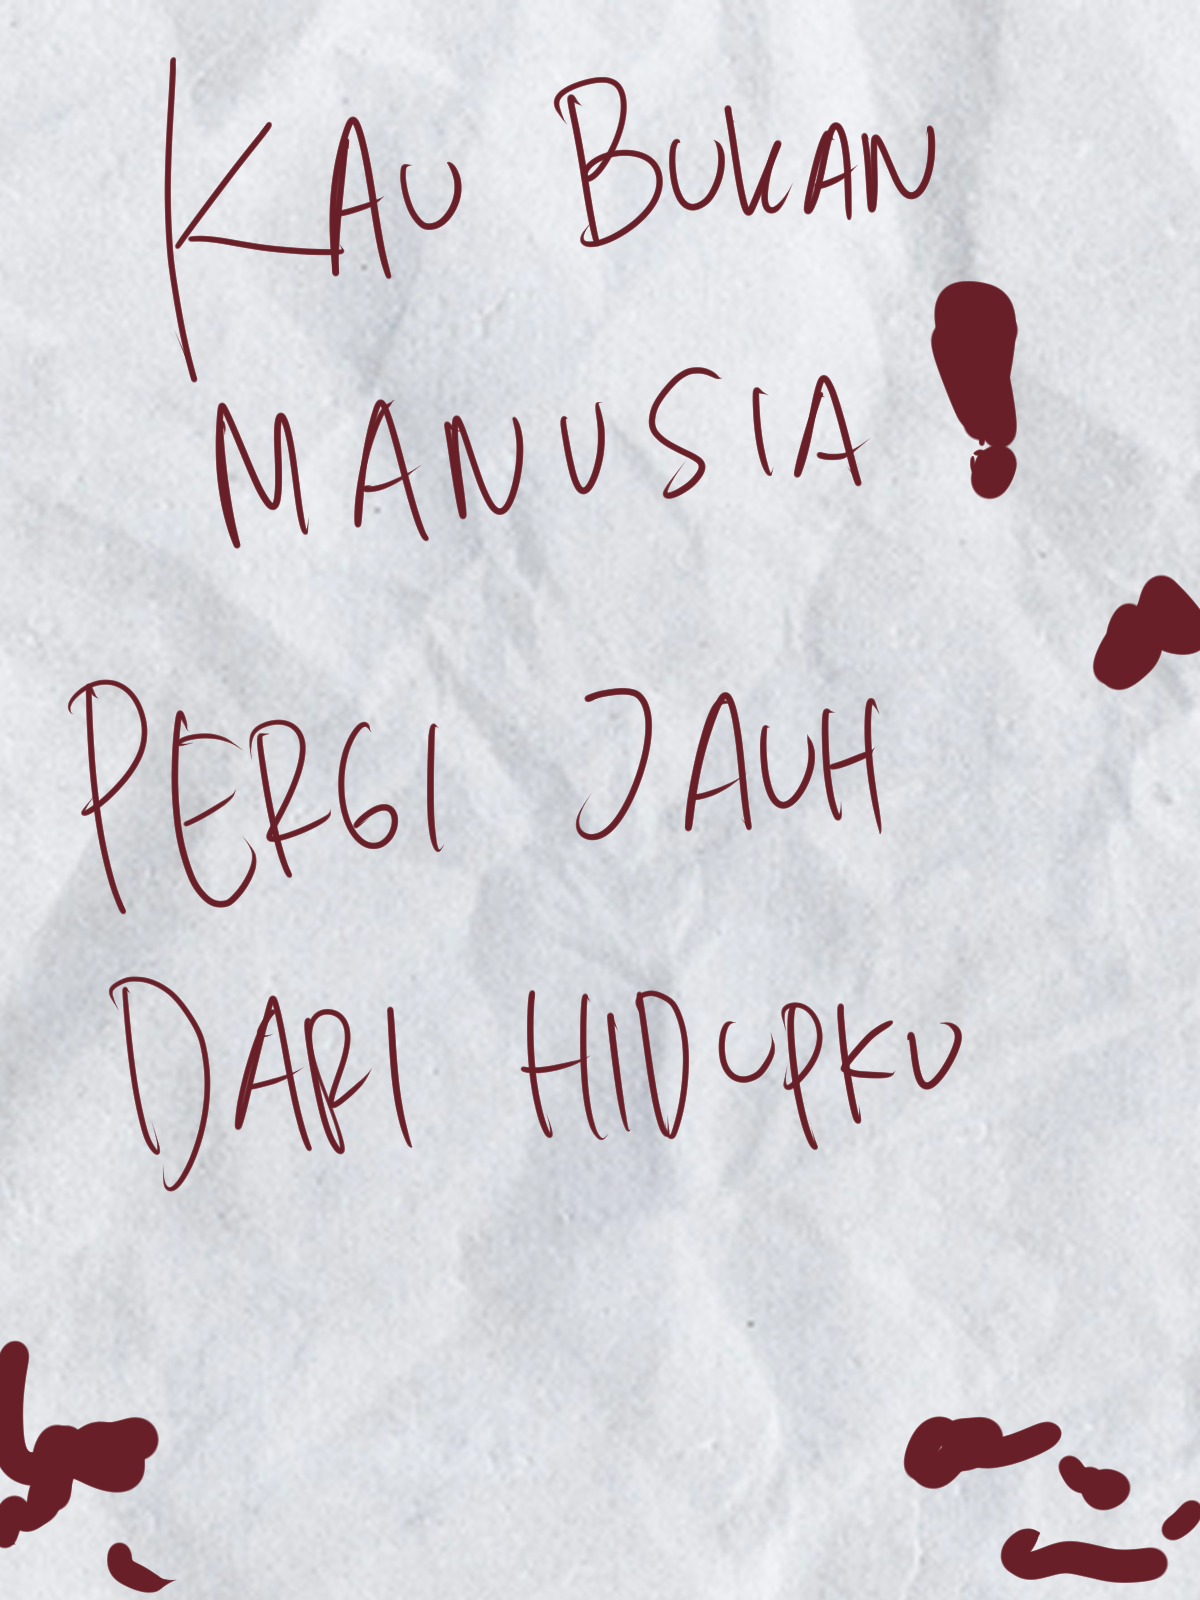 KAU BUKAN
MANUSIA!
PERGI JAUH
DARI HIDUPKU